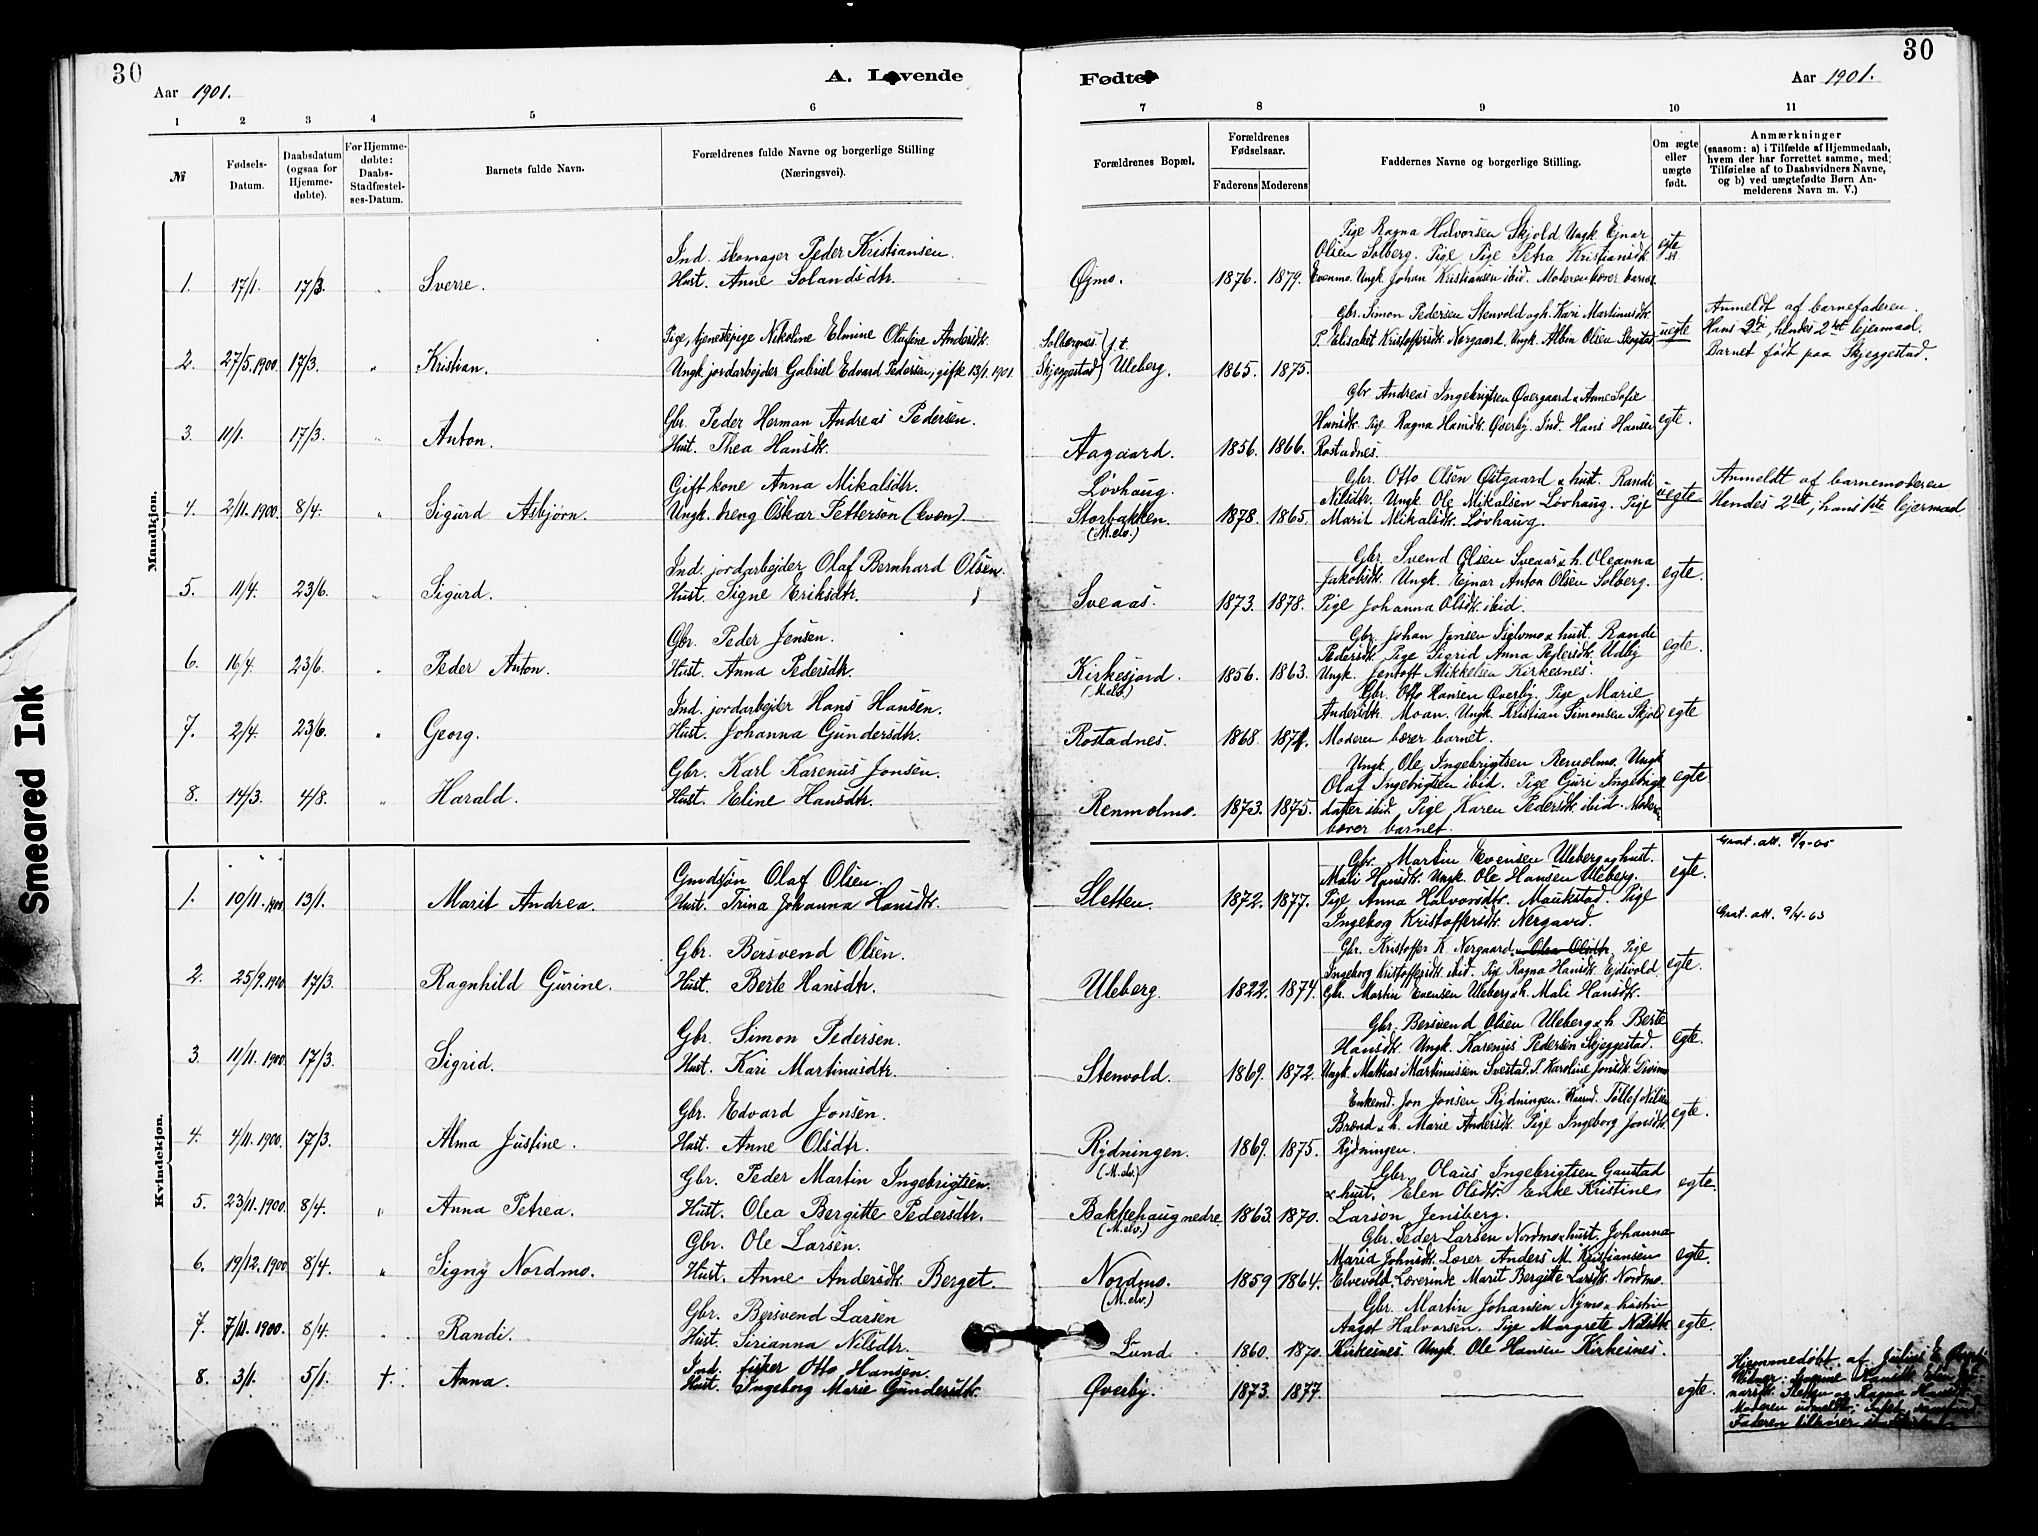 30
A. Levende
Aar 1901.
1 2 3 4 5 6
№
Fødsels-Datum.
Daabsdatum (ogsaa for Hjemmedøbte).
For Hjemmedøbte: Daabs-Stadfæstelses-Datum.
Barnets fulde Navn.
Forældrenes fulde Navne og borgerlige Stilling (Næringsvei).
Mandkjøn.
Ind. skomager Peder Kristiansen.
1. 17/1. 17/3. " Sverre. Hust. Anne Solandsdtr.
Pige, tjenestepige Nikoline Elmine Olufine Andersdtr.
2. 27/5.1900 17/3. " Kristian. Ungk. jordarbejder Gabriel Edvard Pedersen, gifte 13/1. 1901.
Gbr. Peder Herman Andreas Pedersen.
3. 11/1. 17/3. " Anton. Hust. Thea Hansdtr.
Gift kone Anna Mikalsdtr.
4. 2/11.1900 8/4. " Sigurd Asbjørn. Ungk. dreng Oskar Petterson (kvæn)
Ind. jordarbejder Olaf Bernhard Olsen.
5. 11/4. 23/6. " Sigurd. Hust. Signe Eriksdtr.
Gbr. Peder Jensen.
6. 16/4. 23/6. " Peder Anton. Hust. Anna Pedersdtr.
Ind. jordarbejder Hans Hansen.
7. 2/4. 23/6. " Georg. Hust. Johanna Gundersdtr.
Gbr. Karl Karenus Jonsen.
8. 14/3. 4/8. " Harald. Hust. Eline Hansdtr.
Kvindekjøn.
Gmdsjøn Olaf Olsen.
1. 10/11.1900 13/1. Marit Andrea. Hust. Trina Johanna Hansdtr.
Gbr. Bersvend Olsen.
2. 25/9.1900 17/3. Ragnhild Gurine. Hust. Berte Hansdtr.
Gbr. Simon Pedersen.
3. 11/11.1900 17/3. Sigrid. Hust. Kari Martinusdtr.
Gbr. Edvard Jonsen.
4. 4/11.1900. 17/3. Alma Justine. Hust. Anne Olsdtr.
Gbr. Peder Martin Ingebrigtsen.
5. 23/11.1900 8/4. " Anna Petrea. Hust. Olea Bergitte Pedersdtr.
Gbr. Ole Larsen.
6. 19/12.1900 8/4. " Signy Nordmo. Hust. Anne Andersdtr. Berget.
Gbr. Bersvend Larsen
7. 7/11.1900. 8/4. " Randi. Hust. Sirianna Nilsdtr.
Ind. fisker Otto Hansen.
8. 3/1. 5/1. †. Anna. Hust. Ingeborg Marie Gundersdtr.
Smeared Ink
30
Fødte
Aar 1901.
7 8 9 10 11
Forældrenes Bopæl.
Forældrenes Fødselsaar.
Faderens Moderens
Faddernes Navne og borgerlige Stilling.
Om ægte eller uægte født.
Anmærkninger
(saasom: a) i Tilfælde af Hjemmedaab, hvem der har forrettet samme, med Tilføielse af to Daabsvidners Navne, og b) ved uægtefødte Børn Anmelderens Navn m. V.)
Pige Ragna Halvorsen Skjold Ungk. Ejnar
Olsen Solberg. Pige Pige Petra Kristiansdtr. egte
Øjmo. 1876. 1879. Evenmo. Ungk. Johan Kristiansen ibid. Moderen bærer barnet
Gbr. Simon Pedersen Stenvold og h. Kari Martinusdtr. Anmeldt af barnefaderen.
Solbergnes. P. Elisabet Kristoffersdtr. Nergaard. Ungk. Albin Olsen Skogstad uegte Hans hendes 2det lejermaal.
Skjeggestad j.t. Uleberg. 1865. 1875. Barnet født paa Skjeggestad.
Gbr. Andreas Ingebrigtsen Øvergaard & Anne Sofie
Hansdtr. Pige Ragna Hansdtr. Øverby. Ind. Hans Hansen egte.
Aagaard. 1856. 1866. Rostadnes.
Løvhaug. Gbr. Otto Olsen Østgaard & hust. Randi Anmeldt af barnemoderen
Nilsdtr. Ungk. Ole Mikalsen Løvhaug. Pige uegte Hendes 2det, hans 1ste lejermaal
Storbakken. (M.elv.) 1878. 1865. Marit Mikalsdtr. Løvhaug.
Gbr. Svend Olsen Sveaas & h. Oleanna
Jakobsdtr. Ungk. Ejnar Anton Olsen Solberg. egte.
Sveaas. 1873. 1878. Pige Johanna Olsdtr. ibid.
Gbr. Johan Jensen & hust. Randi
Pedersdtr. Pige Sigrid Anna Pedersdtr. Udby egte.
Kirkesjord. (M.elv.) 1856. 1863. Ungk. Jentoft Mikkelsen Kirkesnes.
Gbr. Otto Hansen Øverby. Pige Marie
Andersdtr. Moan. Ungk. Kristian Simonsen Skjold egte
Rostadnes. 1868 1874. Moderen bærer barnet.
Ungk. Ole Ingebrigtsen Renmolmo. Ungk
Olaf Ingebrigtsen ibid. Pige Guri Ingebrigt- egte
Renmolmo. 1873. 1875. datter ibid. Pige Karen Pedersdtr. ibid. Moderen
bærer barnet.
Grat. att.
Gbr. Martin Evensen Uleberg og hust.
Mali Hansdtr. Ungk. Ole Hansen Uleberg. egte.
Sletten. 1872. 1877. Pige Anna Halvorsdtr. Maukstad. Pige
Ingeborg Kristoffersdtr. Nergaard. Grat. att. 9/4-03
Gbr. Kristoffer K. Nergaard & Olea Olsdtr. Pige
Ingeborg Kristoffersdtr. ibid. Pige Ragna Hansdtr. Ejdsvold egte.
Uleberg. 1822. 1874. Gbr. Martin Evensen Uleberg & h. Mali Hansdtr.
Gbr. Bersvend Olsen Uleberg & h. Berte
Hansdtr. Ungk. Karenus Pedersen Skjeggestad. egte.
Stenvold. 1869. 1872. Ungk. Mathias Martinussen Svestad. P. Karoline Jonsdtr.
Enkemd. Jon Jonsen Rydningen. Tollef Nilsen
Brænd & h. Marie Andersdtr. Pige Ingeborg Jonsdtr. egte.
Rydningen. (M.elv.) 1869. 1875. Rydningen.
Gbr. Olaus Ingebrigtsen Gaustad
& hust. Elen Olsdtr. Enke Kristine egte.
Bakkehaug nedre (M.elv.) 1863. 1870. Larson Jensberg.
Gbr. Peder Larsen Nordmo & hust. Johanna
Maria Johnsdtr. Lærer Anders M. Kristiansen egte.
Nordmo. (M.elv.) 1859 1864. Elvevold. Lærerinde Marit Bergitte Larsdtr. Nordmo.
Gbr. Martin Johansen Nymo & hustru
Aagot Halvorsen. Pige Margrete Nilsdtr. egte.
Lund 1860. 1870. Kirkesnes Ungk. Ole Hansen Kirkesnes.
Øverby. 1873. 1877. egte.
Hjemmedøbt af Julius E.
Sletten og Ragna
Moderen udmeldt
Faderen tilhører